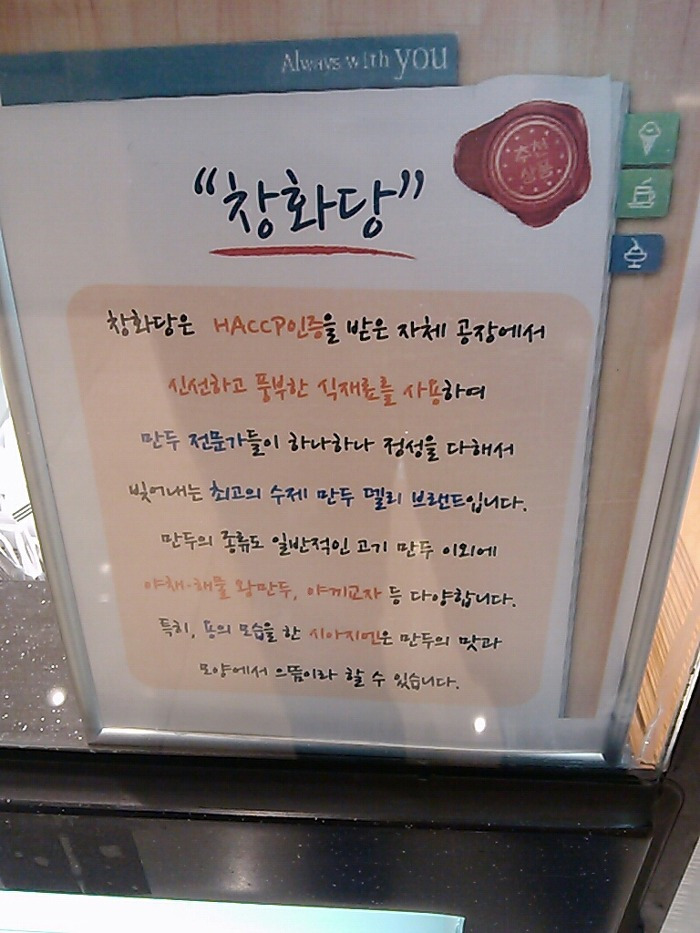 Always with you
추천
상품
“창화당”
창화당은 HACCP인증을 받은 자체 공장에서
신선하고 풍부한 식재료를 사용하여
만두 전문가들이 하나하나 정성을 다해서
빚어내는 최고의 수제 만두 델리 브랜드입니다.
만두의 종류도 일반적인 고기 만두 이외에
야채·해물 왕만두, 야끼교자 등 다양합니다.
특히, 용의 모습을 한 시아지언은 만두의 맛과
모양에서 으뜸이라 할 수 있습니다.